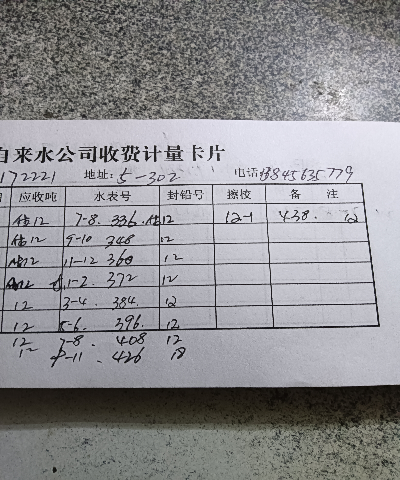 自来水公司收费计量卡片
172221 地址: 5-302 电话 13845635779
应收吨 水表号 封铅号 擦校 备 注
12 7-8. 336. 12 12-1 438. 12
12 9-10 348 12
12 11-12 360 12
12 1-2. 372 12
12 3-4. 384. 12
12 5-6. 396. 12
12 7-8 408 12
12 9-11. 426 18